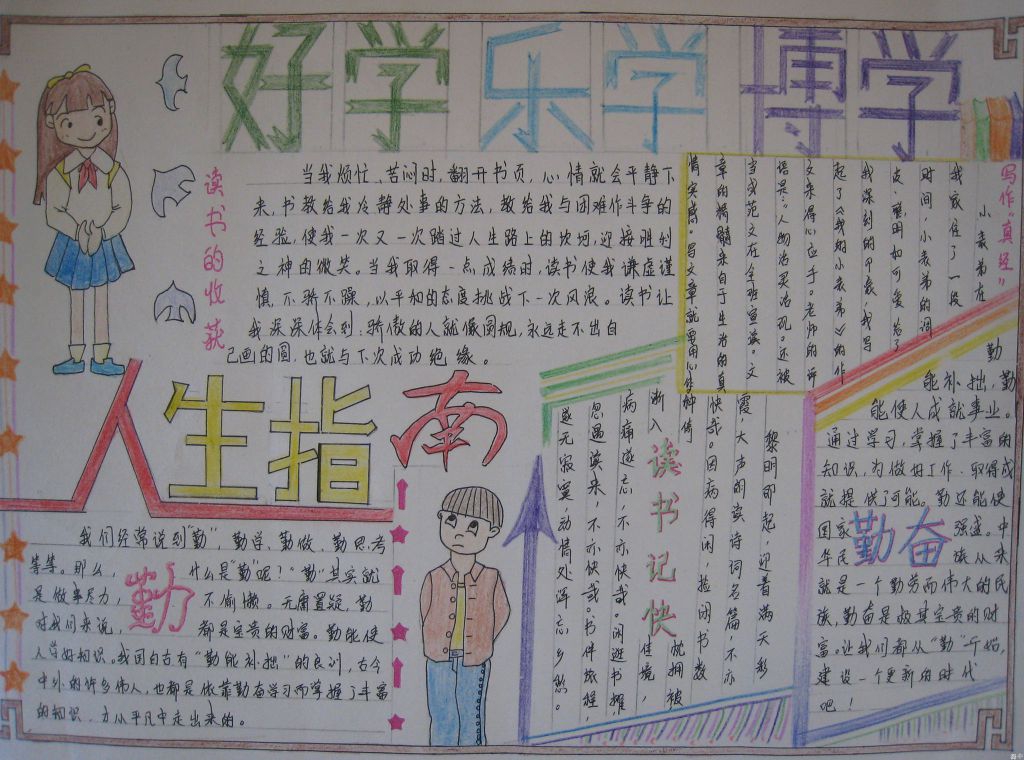 好学乐学博学
读书的收获
当我烦忙、苦闷时,翻开书页,心情就会平静下
来,书教给我冷静处事的方法,教给我与困难作斗争的
经验,使我一次又一次踏过人生路上的坎坷,迎接胜利
之神的微笑。当我取得一点成绩时,读书使我谦虚谨
慎,不骄不躁,以平和的态度挑战下一次风浪。读书让
我深深体会到:骄傲的人就像圆规,永远走不出自
己画的圆,也就与下次成功绝缘。
写作“真经”
小表弟在
我家住了一段
时间,小表弟的调
皮、聪明和可爱给了
我深刻的印象,我写
起了《我的小表弟》的作
文来得心应手。老师的评
语是:“人物活灵活现。”还被
当成范文在全班宣读。文
章的精髓来自于生活的真
情实感。写文章就要用心体
人生指南
我们经常说到“勤”,勤学、勤做、勤思考
等等。那么,什么是“勤”呢?“勤”其实就
是做事尽力,不偷懒。无庸置疑,勤
对我们来说,都是宝贵的财富。勤能使
人学好知识。我国自古有“勤能补拙”的良训,古今
中外的许多伟人,也都是依靠勤奋学习而掌握了丰富
的知识,才从平凡中走出来的。
勤
读书记快
黎明即起,迎着满天彩
霞,大声朗读诗词名篇,不亦
快哉。因病得闲,捡闲书数
种,倚
就拥被
渐入
佳境,
病痛遂忘,不亦快哉。闲逛书摊,
忽遇读来,不亦快哉。书伴旅程,
遂无寂寞,动情处浑忘乡愁。
勤
能补拙,勤
能使人成就事业。
通过学习,掌握了丰富的
知识,为做好工作、取得成
就提供了可能。勤还能使
国家强盛。中
华民族从来
就是一个勤劳而伟大的民
族,勤奋是极其宝贵的财
富。让我们都从“勤”开始,
建设一个更新的时代
吧!
勤奋